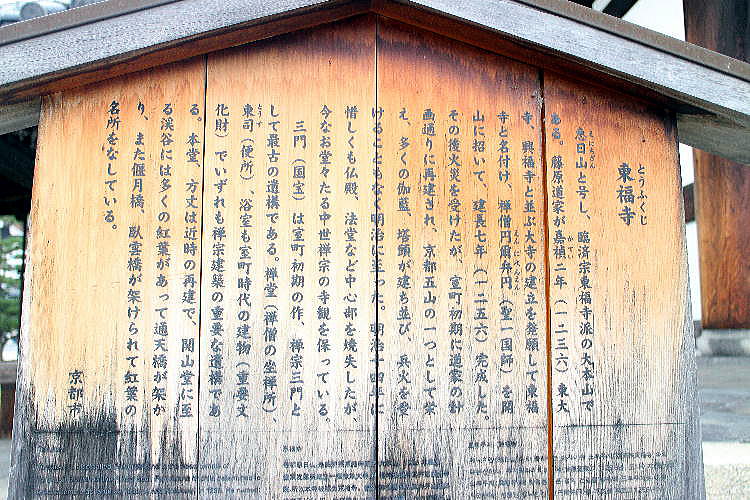 とうふくじ
東福寺
えにちざん
恵日山と号し、臨済宗東福寺派の大本山で
ある。藤原道家が嘉禎二年（一二三六）東大
寺、興福寺と並ぶ大寺の建立を発願して東福
寺と名付け、禅僧円爾弁円（聖一国師）を開
山に招いて、建長七年（一二五六）完成した。
その後火災を受けたが、室町初期に道家の計
画通りに再建され、京都五山の一つとして栄
え、多くの伽藍、塔頭が建ち並び、兵火を受
けることもなく明治に至った。明治十四年に
惜しくも仏殿、法堂など中心部を焼失したが、
今なお堂々たる中世禅宗の寺観を保っている。
三門（国宝）は室町初期の作、禅宗三門と
して最古の遺構である。禅堂（禅僧の坐禅所）、
とうす
東司（便所）、浴室も室町時代の建物（重要文
化財）でいずれも禅宗建築の重要な遺構であ
る。本堂、方丈は近時の再建で、開山堂に至
る渓谷には多くの紅葉があって通天橋が架か
り、また偃月橋、臥雲橋が架けられて紅葉の
名所をなしている。
京都市